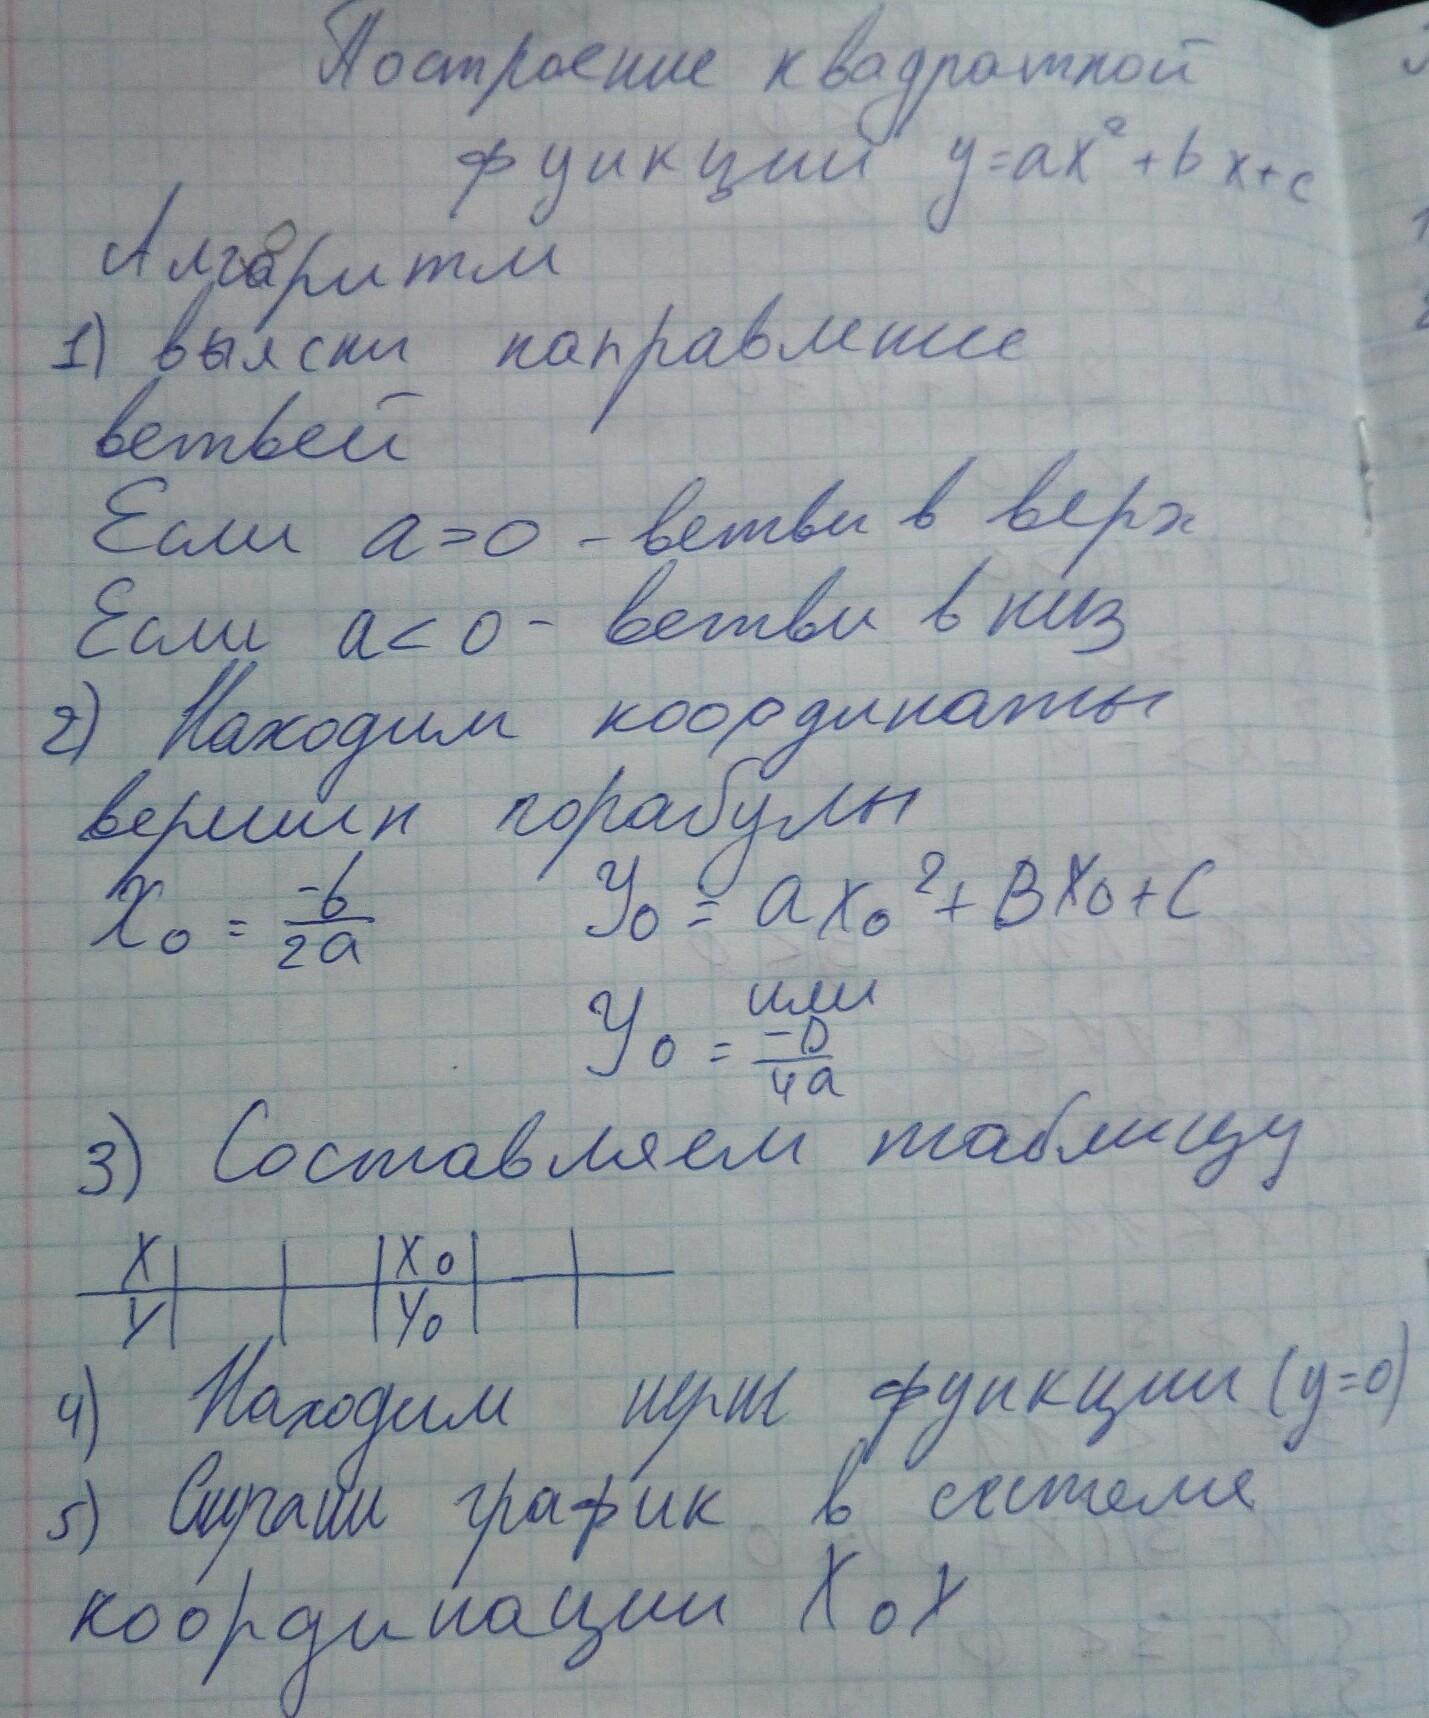 Построение квадратной
функции y=ax²+bx+c
Алгоритм
1) выясни направление
ветвей
Если a>0 - ветви в верх
Если a<0 - ветви в низ
2) Находим координаты
вершин порабулы
X₀ = -b/2a Y₀ = ax₀²+BX₀+C
или
Y₀ = -D/4a
3) Составляем таблицу
X X₀
Y Y₀
4) Находим функции (y=0)
5) график в системе
координации X₀Y